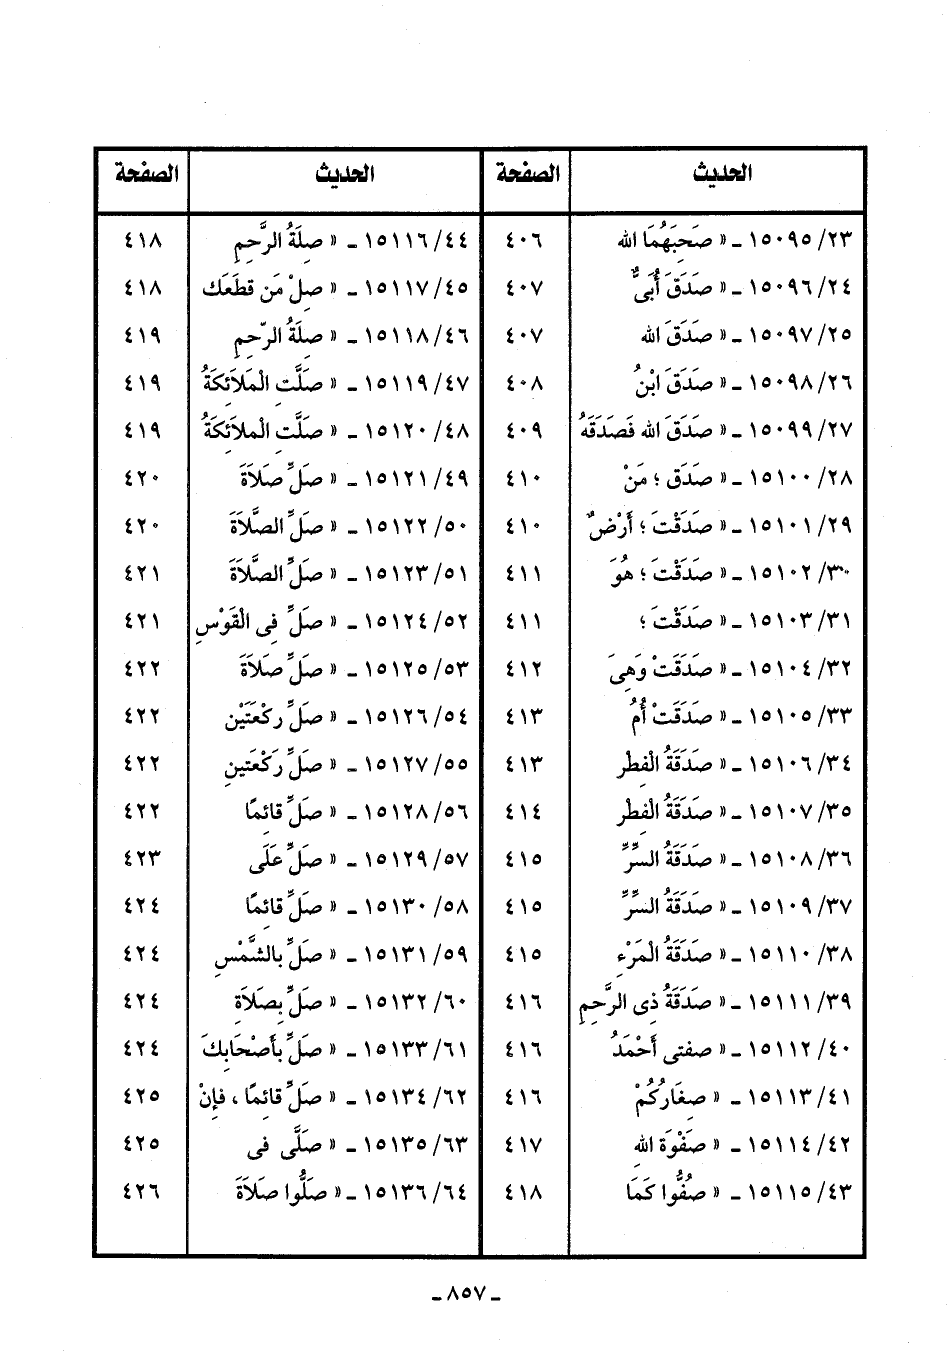 الحديث الصفحة الحديث الصفحة
٢٣/١٥٠٩٥ ـ « صَحِبَهُمَا الله ٤٠٦ ٤٤/١٥١١٦ ـ « صِلَةُ الرَّحِمِ ٤١٨
٢٤/١٥٠٩٦ ـ « صَدَقَ أُبَىٌّ ٤٠٧ ٤٥/١٥١١٧ ـ « صِلْ مَن قطَعَك ٤١٨
٢٥/١٥٠٩٧ ـ « صَدَقَ الله ٤٠٧ ٤٦/١٥١١٨ ـ « صِلَةُ الرّحِمِ ٤١٩
٢٦/١٥٠٩٨ ـ « صَدَقَ ابْنُ ٤٠٨ ٤٧/١٥١١٩ ـ « صَلَّتِ الْمَلاَئِكَةُ ٤١٩
٢٧/١٥٠٩٩ ـ « صَدَقَ الله فَصَدَقَهُ ٤٠٩ ٤٨/١٥١٢٠ ـ « صَلَّتِ الْملاَئِكَةُ ٤١٩
٢٨/١٥١٠٠ ـ « صَدَق ؛ مَنْ ٤١٠ ٤٩/١٥١٢١ ـ « صَلِّ صَلاَةَ ٤٢٠
٢٩/١٥١٠١ ـ « صَدَقْتَ ؛ أَرْضٌ ٤١٠ ٥٠/١٥١٢٢ ـ « صَلِّ الصَّلاَةَ ٤٢٠
٣٠/١٥١٠٢ ـ « صَدَقْتَ ؛ هُوَ ٤١١ ٥١/١٥١٢٣ ـ « صَلِّ الصَّلاَةَ ٤٢١
٣١/١٥١٠٣ ـ « صَدَقْتَ ؛ ٤١١ ٥٢/١٥١٢٤ ـ « صَلِّ فِى الْقَوْسِ ٤٢١
٣٢/١٥١٠٤ ـ « صَدَقَتْ وَهِىَ ٤١٢ ٥٣/١٥١٢٥ ـ « صَلِّ صَلاَةَ ٤٢٢
٣٣/١٥١٠٥ ـ « صَدَقَتْ أُمُّ ٤١٣ ٥٤/١٥١٢٦ ـ « صَلِّ ركْعَتَيْن ٤٢٢
٣٤/١٥١٠٦ ـ « صَدَقَةُ الْفِطر ٤١٣ ٥٥/١٥١٢٧ ـ « صَلِّ رَكْعَتينِ ٤٢٢
٣٥/١٥١٠٧ ـ « صَدَقَةُ الْفِطْر ٤١٤ ٥٦/١٥١٢٨ ـ « صَلِّ قَائِمًا ٤٢٢
٣٦/١٥١٠٨ ـ « صَدَقَةُ السِّرِّ ٤١٥ ٥٧/١٥١٢٩ ـ « صَلِّ عَلَى ٤٢٣
٣٧/١٥١٠٩ ـ « صَدَقَةُ السِّرِّ ٤١٥ ٥٨/١٥١٣٠ ـ « صَلِّ قائِمًا ٤٢٤
٣٨/١٥١١٠ ـ « صَدَقَةُ الْمَرْءِ ٤١٥ ٥٩/١٥١٣١ ـ « صَلِّ بالشَّمْسِ ٤٢٤
٣٩/١٥١١١ ـ « صَدَقَةُ ذِى الرَّحِمِ ٤١٦ ٦٠/١٥١٣٢ ـ « صَلِّ بِصَلاَةِ ٤٢٤
٤٠/١٥١١٢ ـ « صفتى أَحْمَدُ ٤١٦ ٦١/١٥١٣٣ ـ « صَلِّ بأَصْحَابِكَ ٤٢٤
٤١/١٥١١٣ ـ « صِغَارُكُمْ ٤١٦ ٦٢/١٥١٣٤ ـ « صَلِّ قائِمًا ، فإِنْ ٤٢٥
٤٢/١٥١١٤ ـ « صَفْوَة اللهِ ٤١٧ ٦٣/١٥١٣٥ ـ « صَلَّى فى ٤٢٥
٤٣/١٥١١٥ ـ « صُفُّوا كَمَا ٤١٨ ٦٤/١٥١٣٦ ـ « صَلُّوا صَلاَةَ ٤٢٦
ـ ٨٥٧ ـ